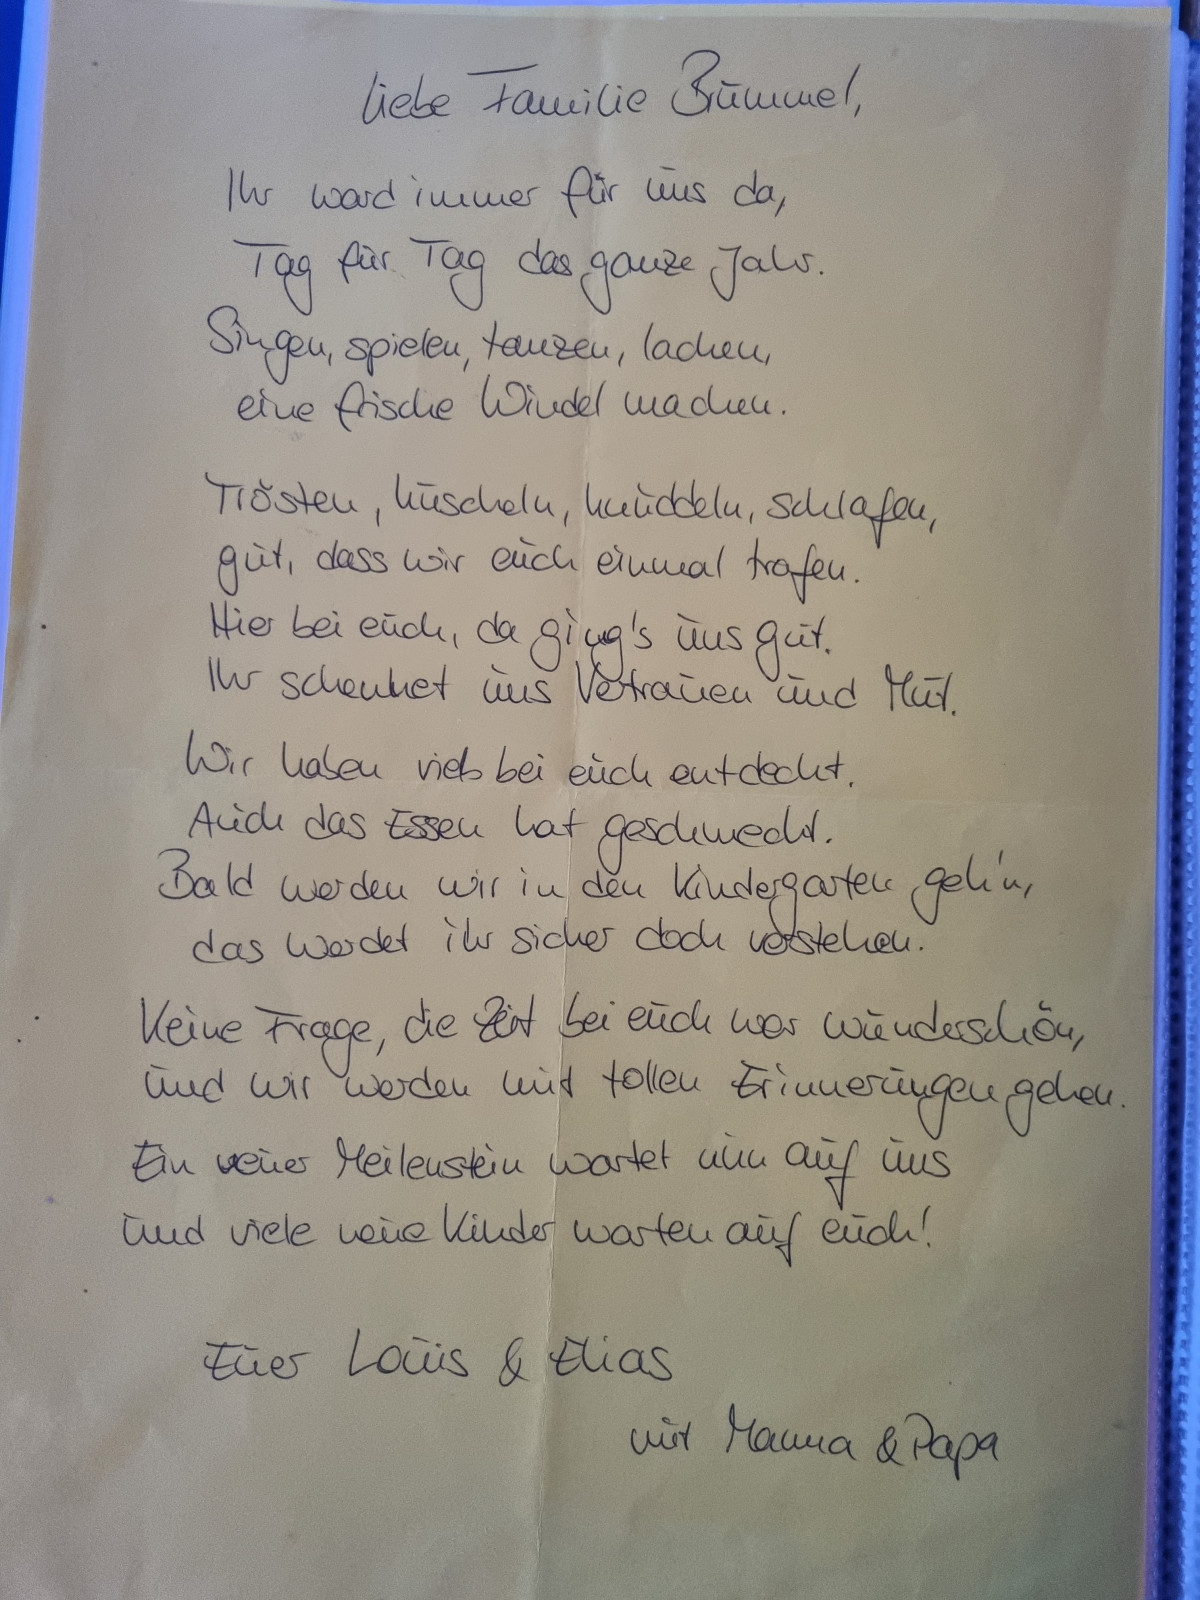 Liebe Familie Brummel,
Ihr ward immer für uns da,
Tag für Tag das ganze Jahr.
Singen, spielen, tanzen, lachen,
eine frische Windel machen.
Trösten, kuscheln, knuddeln, schlafen,
gut, dass wir euch einmal trafen.
Hier bei euch, da ging's uns gut.
Ihr schenket uns Vertrauen und Mut.
Wir haben viel bei euch entdeckt.
Auch das Essen hat geschmeckt.
Bald werden wir in den Kindergarten geh'n,
das werdet ihr sicher doch verstehen.
Keine Frage, die Zeit bei euch war wunderschön,
und wir werden mit tollen Erinnerungen gehen.
Ein neuer Meilenstein wartet nun auf uns
und viele neue Kinder warten auf euch!
Euer Louis & Elias
mit Mama & Papa